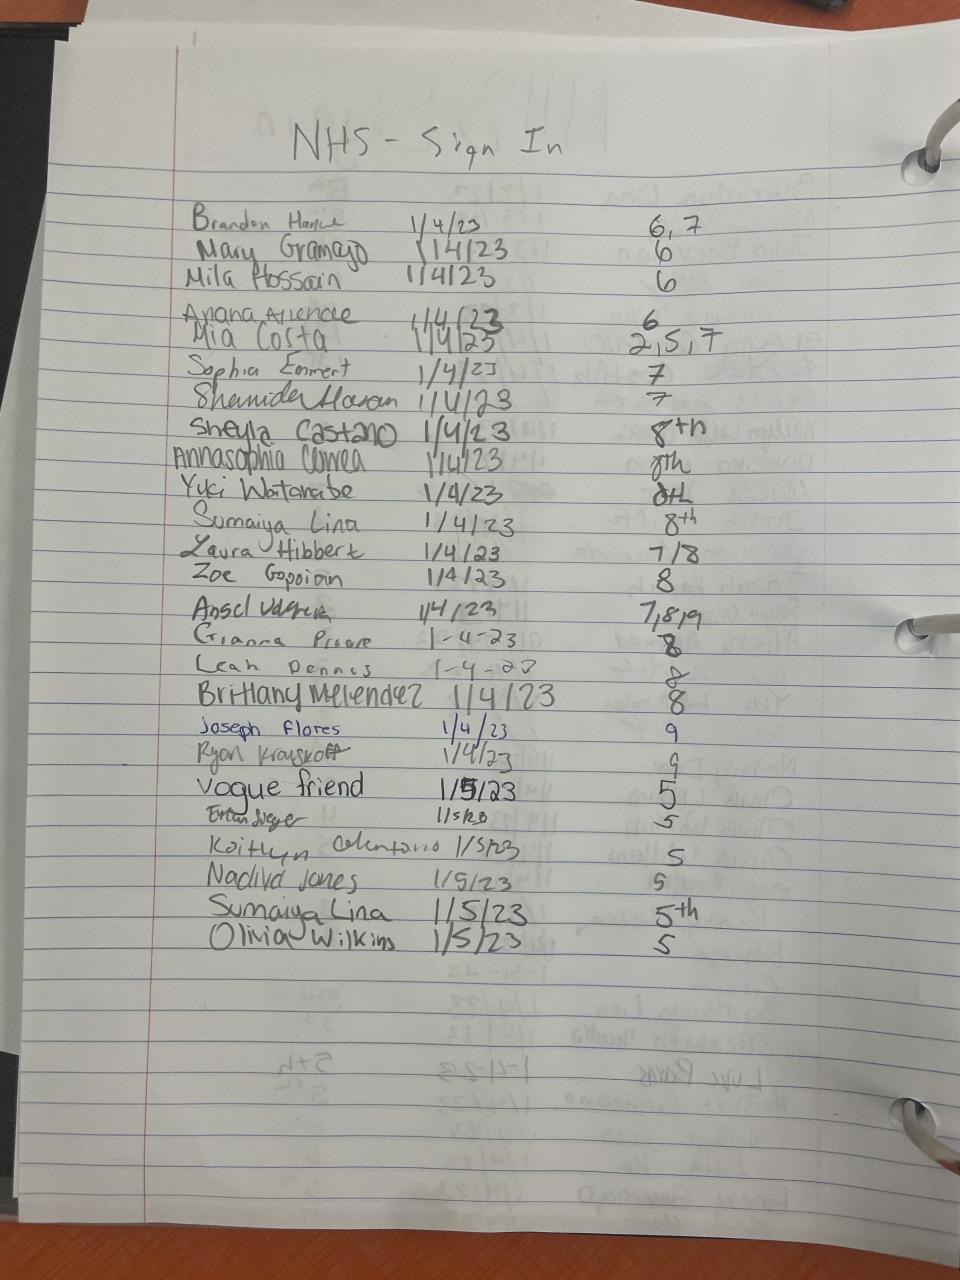 NHS - Sign In
Brandon 1/4/23 6, 7
Mary Gramajo 1/4/23 6
Mila Hossain 1/4/23 6
1/4/23 6
Mia Costa 1/4/23 2,5,7
Sophia Emmert 1/4/23 7
Shamida Hasan 1/4/23 7
Sheyla Castano 1/4/23 8th
Annasophia Correa 1/4/23 8th
Yuki Watanabe 1/4/23 8th
Sumaiya Lina 1/4/23 8th
Laura Hibbert 1/4/23 7/8
Zoe Gopoian 1/4/23 8
Ansel 1/4/23 7,8,9
Gianna 1-4-23 8
Leah Dennis 1-4-23 8
Brittany Melendez 1/4/23 8
Joseph Flores 1/4/23 9
Ryan Krauskoff 1/4/23 9
Vogue friend 1/5/23 5
5
Kaitlyn Colentano 1/5/23 5
Nadiya Jones 1/5/23 5
Sumaiya Lina 1/5/23 5th
Olivia Wilkins 1/5/23 5